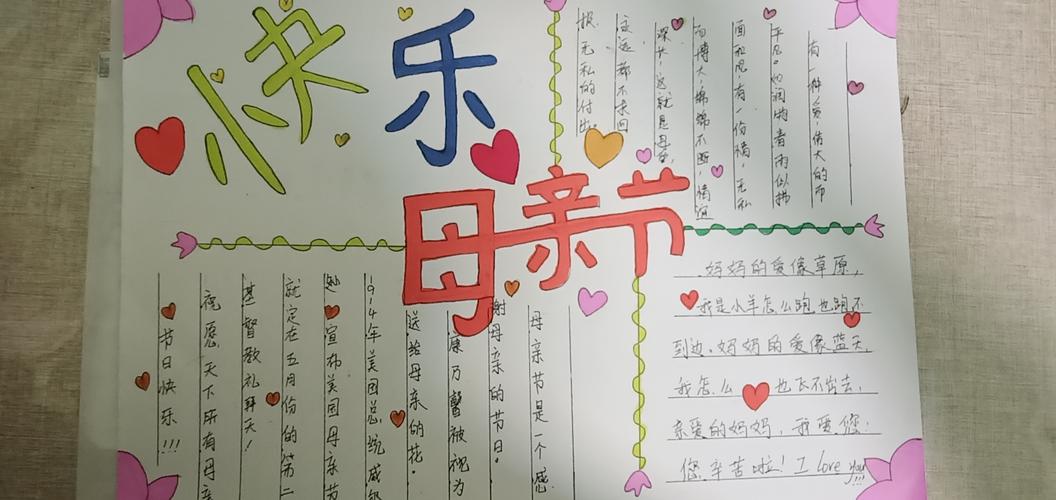 快乐
母亲节
有一种爱,伟大的而
平凡。他润物着雨似拂
面和风,有一份情,无私
而博大,绵绵不断,情宜
深长。这就是母爱,
永远都不求回
报,无私的付出。
母亲节是一个感
谢母亲的节日。
康乃馨被视为
送给母亲的花。
1914年美国总统威
宣布美国母亲节
就定在五月份的第二
基督教礼拜天!
祝愿天下所有母亲
节日快乐!!!
妈妈的爱像草原,
我是小羊怎么跑也跑不
到边。妈妈的爱像蓝天,
我怎么也飞不出去,
亲爱的妈妈,我爱您,
您辛苦啦! I love you!!!